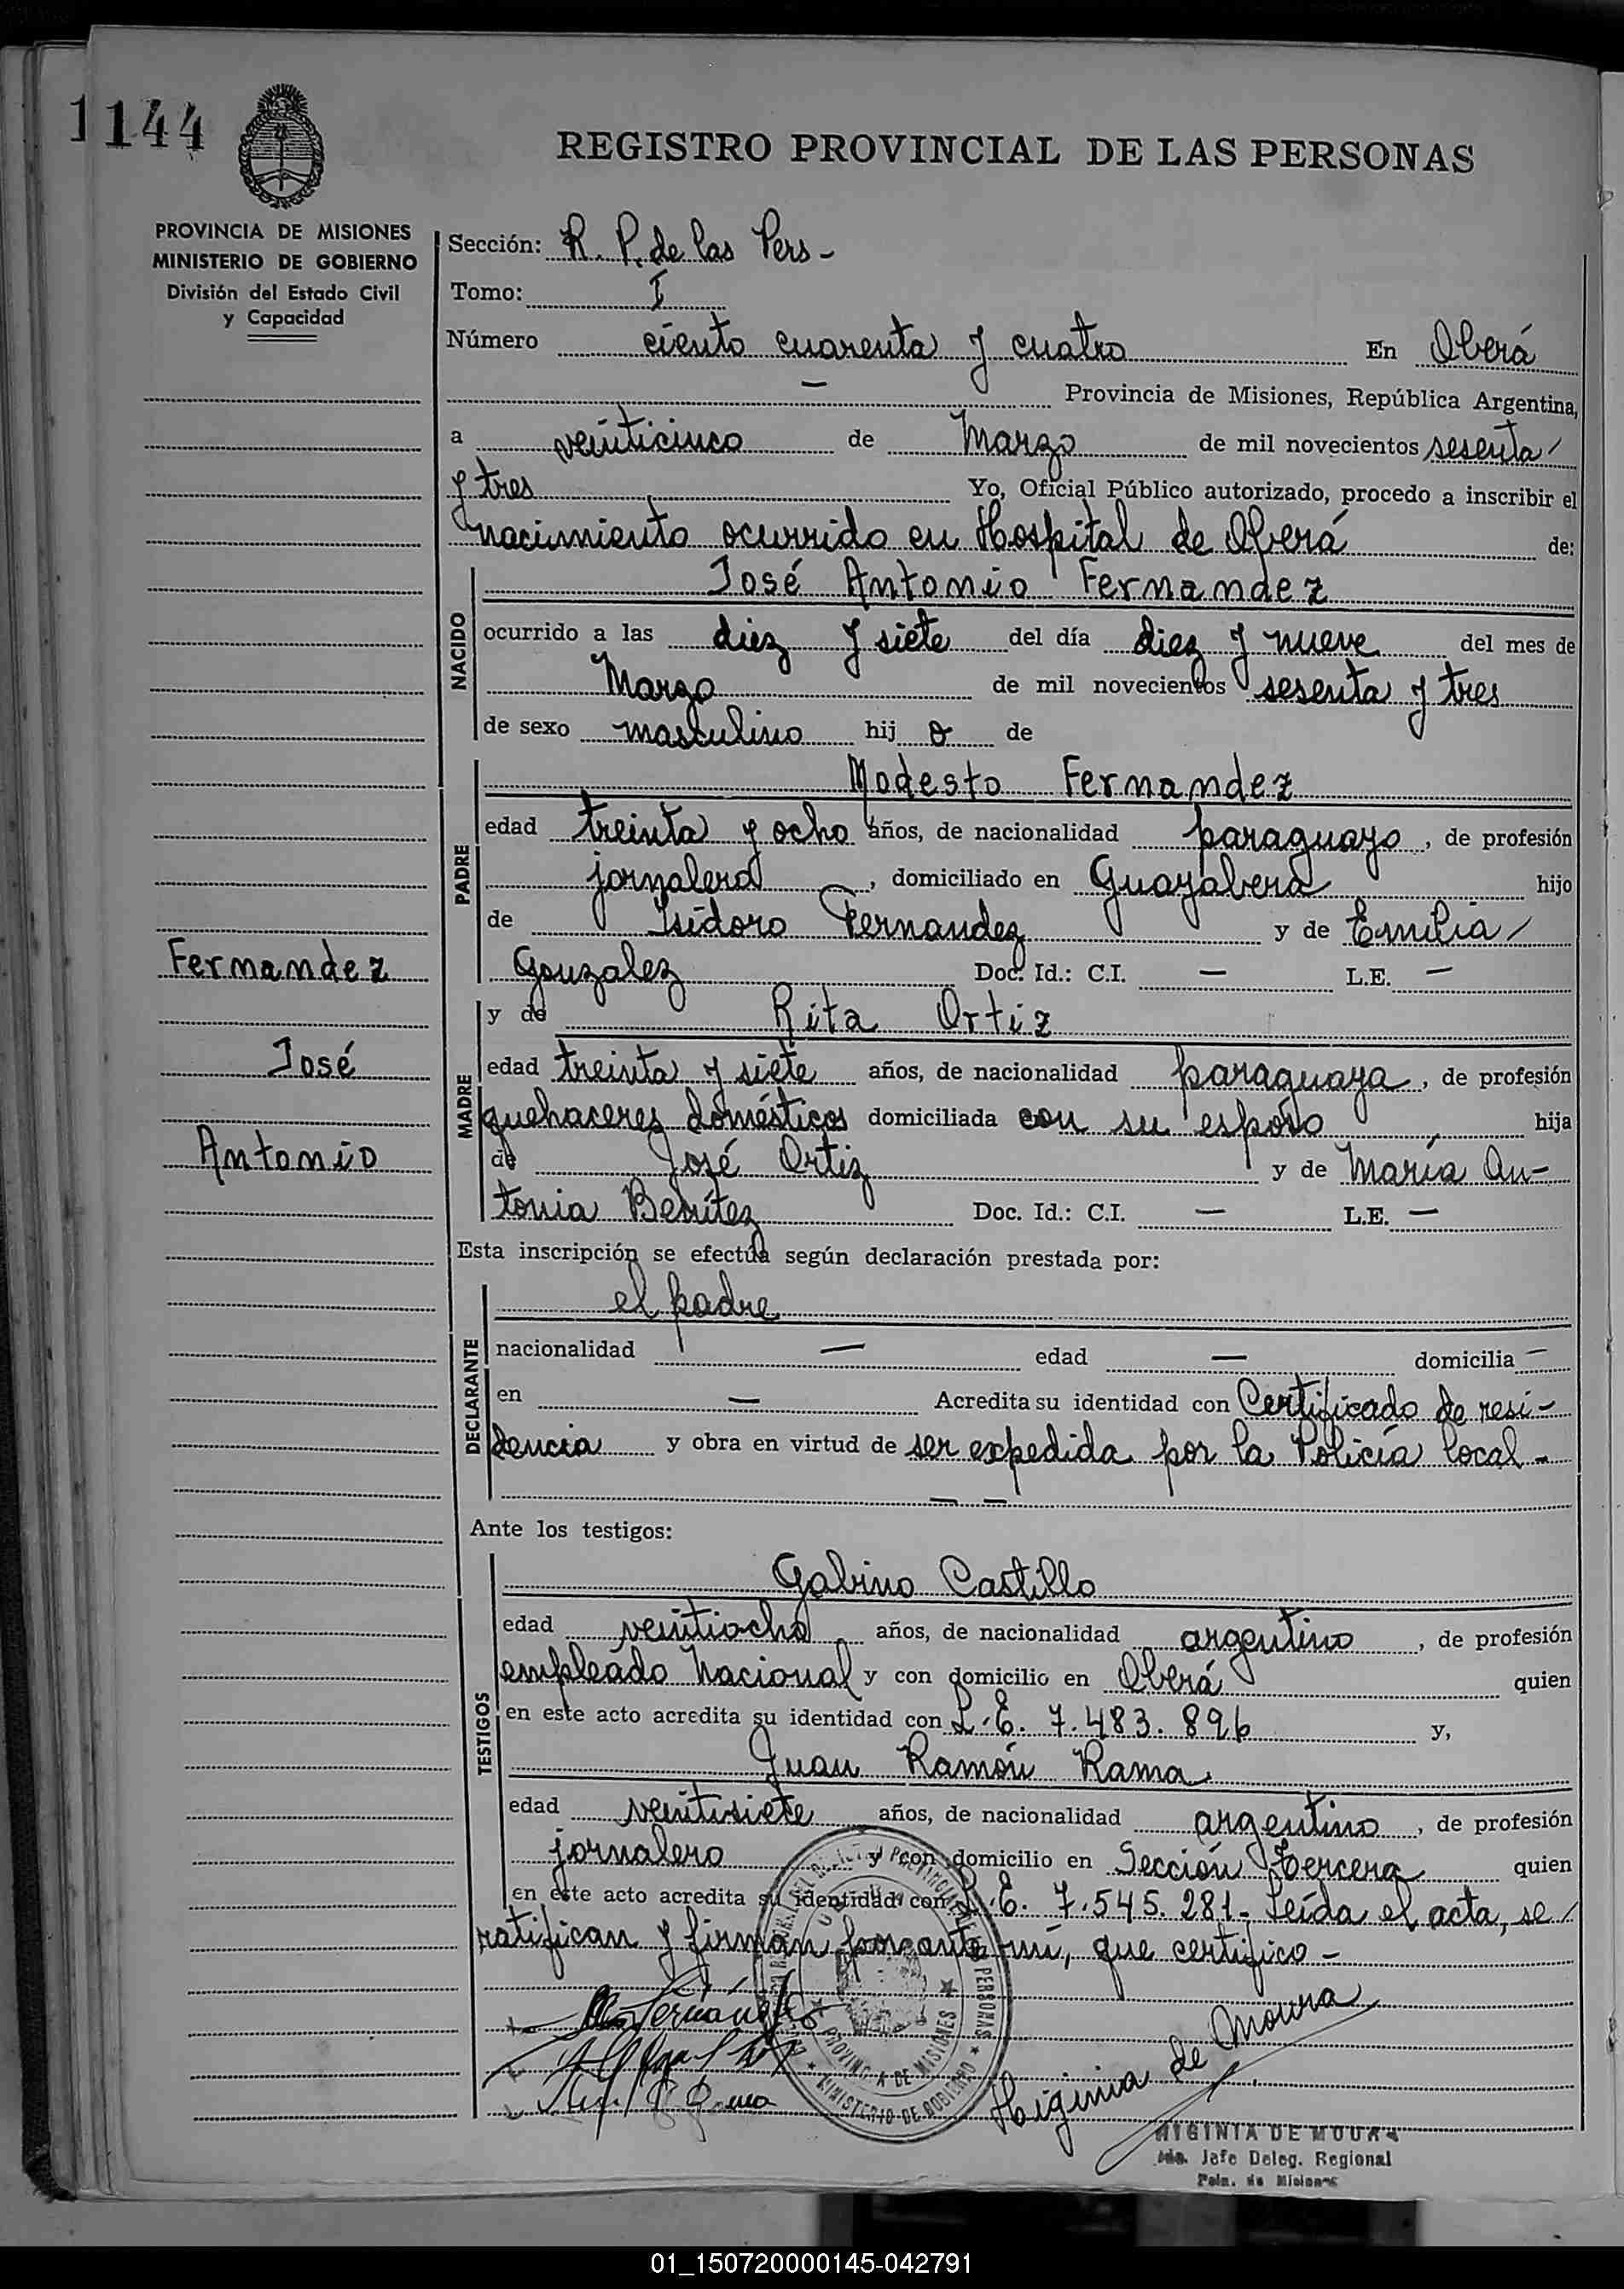 1144
REGISTRO PROVINCIAL DE LAS PERSONAS
PROVINCIA DE MISIONES
MINISTERIO DE GOBIERNO
División del Estado Civil
y Capacidad
Sección: R. P. de las Pers -
Tomo: I
Número ciento cuarenta y cuatro En Oberá
— Provincia de Misiones, República Argentina,
a veinticinco de Marzo de mil novecientos sesenta /
y tres Yo, Oficial Público autorizado, procedo a inscribir el
nacimiento ocurrido en Hospital de Oberá de:
NACIDO
José Antonio Fernandez
ocurrido a las diez y siete del día diez y nueve del mes de
Marzo de mil novecientos sesenta y tres
de sexo masculino hij o de
PADRE
Modesto Fernandez
edad treinta y ocho años, de nacionalidad paraguayo, de profesión
jornalero, domiciliado en Guayabera hijo
de Isidoro Fernandez y de Emilia /
Gonzalez Doc. Id.: C.I. — L.E. —
Fernandez
José
Antonio
MADRE
y de Rita Ortiz
edad treinta y siete años, de nacionalidad paraguaya, de profesión
quehaceres domésticos domiciliada con su esposo hija
de José Ortiz y de María An-
tonia Benítez Doc. Id.: C.I. — L.E. —
Esta inscripción se efectúa según declaración prestada por:
DECLARANTE
el padre
nacionalidad — edad — domicilia —
en — Acredita su identidad con Certificado de resi-
dencia y obra en virtud de ser expedida por la Policía local -
— —
Ante los testigos:
TESTIGOS
Gabino Castillo
edad veintiocho años, de nacionalidad argentino, de profesión
empleado Nacional y con domicilio en Oberá quien
en este acto acredita su identidad con L.E. 7.483.896 y,
Juan Ramón Rama
edad veintisiete años, de nacionalidad argentino, de profesión
jornalero y con domicilio en Sección Tercera quien
en este acto acredita su identidad con L.E. 7.545.281 - Leída el acta, se /
ratifican y firman por ante mí, que certifico -
Fernández
Higinia de Moura
PROVINCIA DE MISIONES
MINISTERIO DE GOBIERNO
HIGINIA DE MOURA
Jefe Deleg. Regional
Pcia. de Misiones
01_150720000145-042791